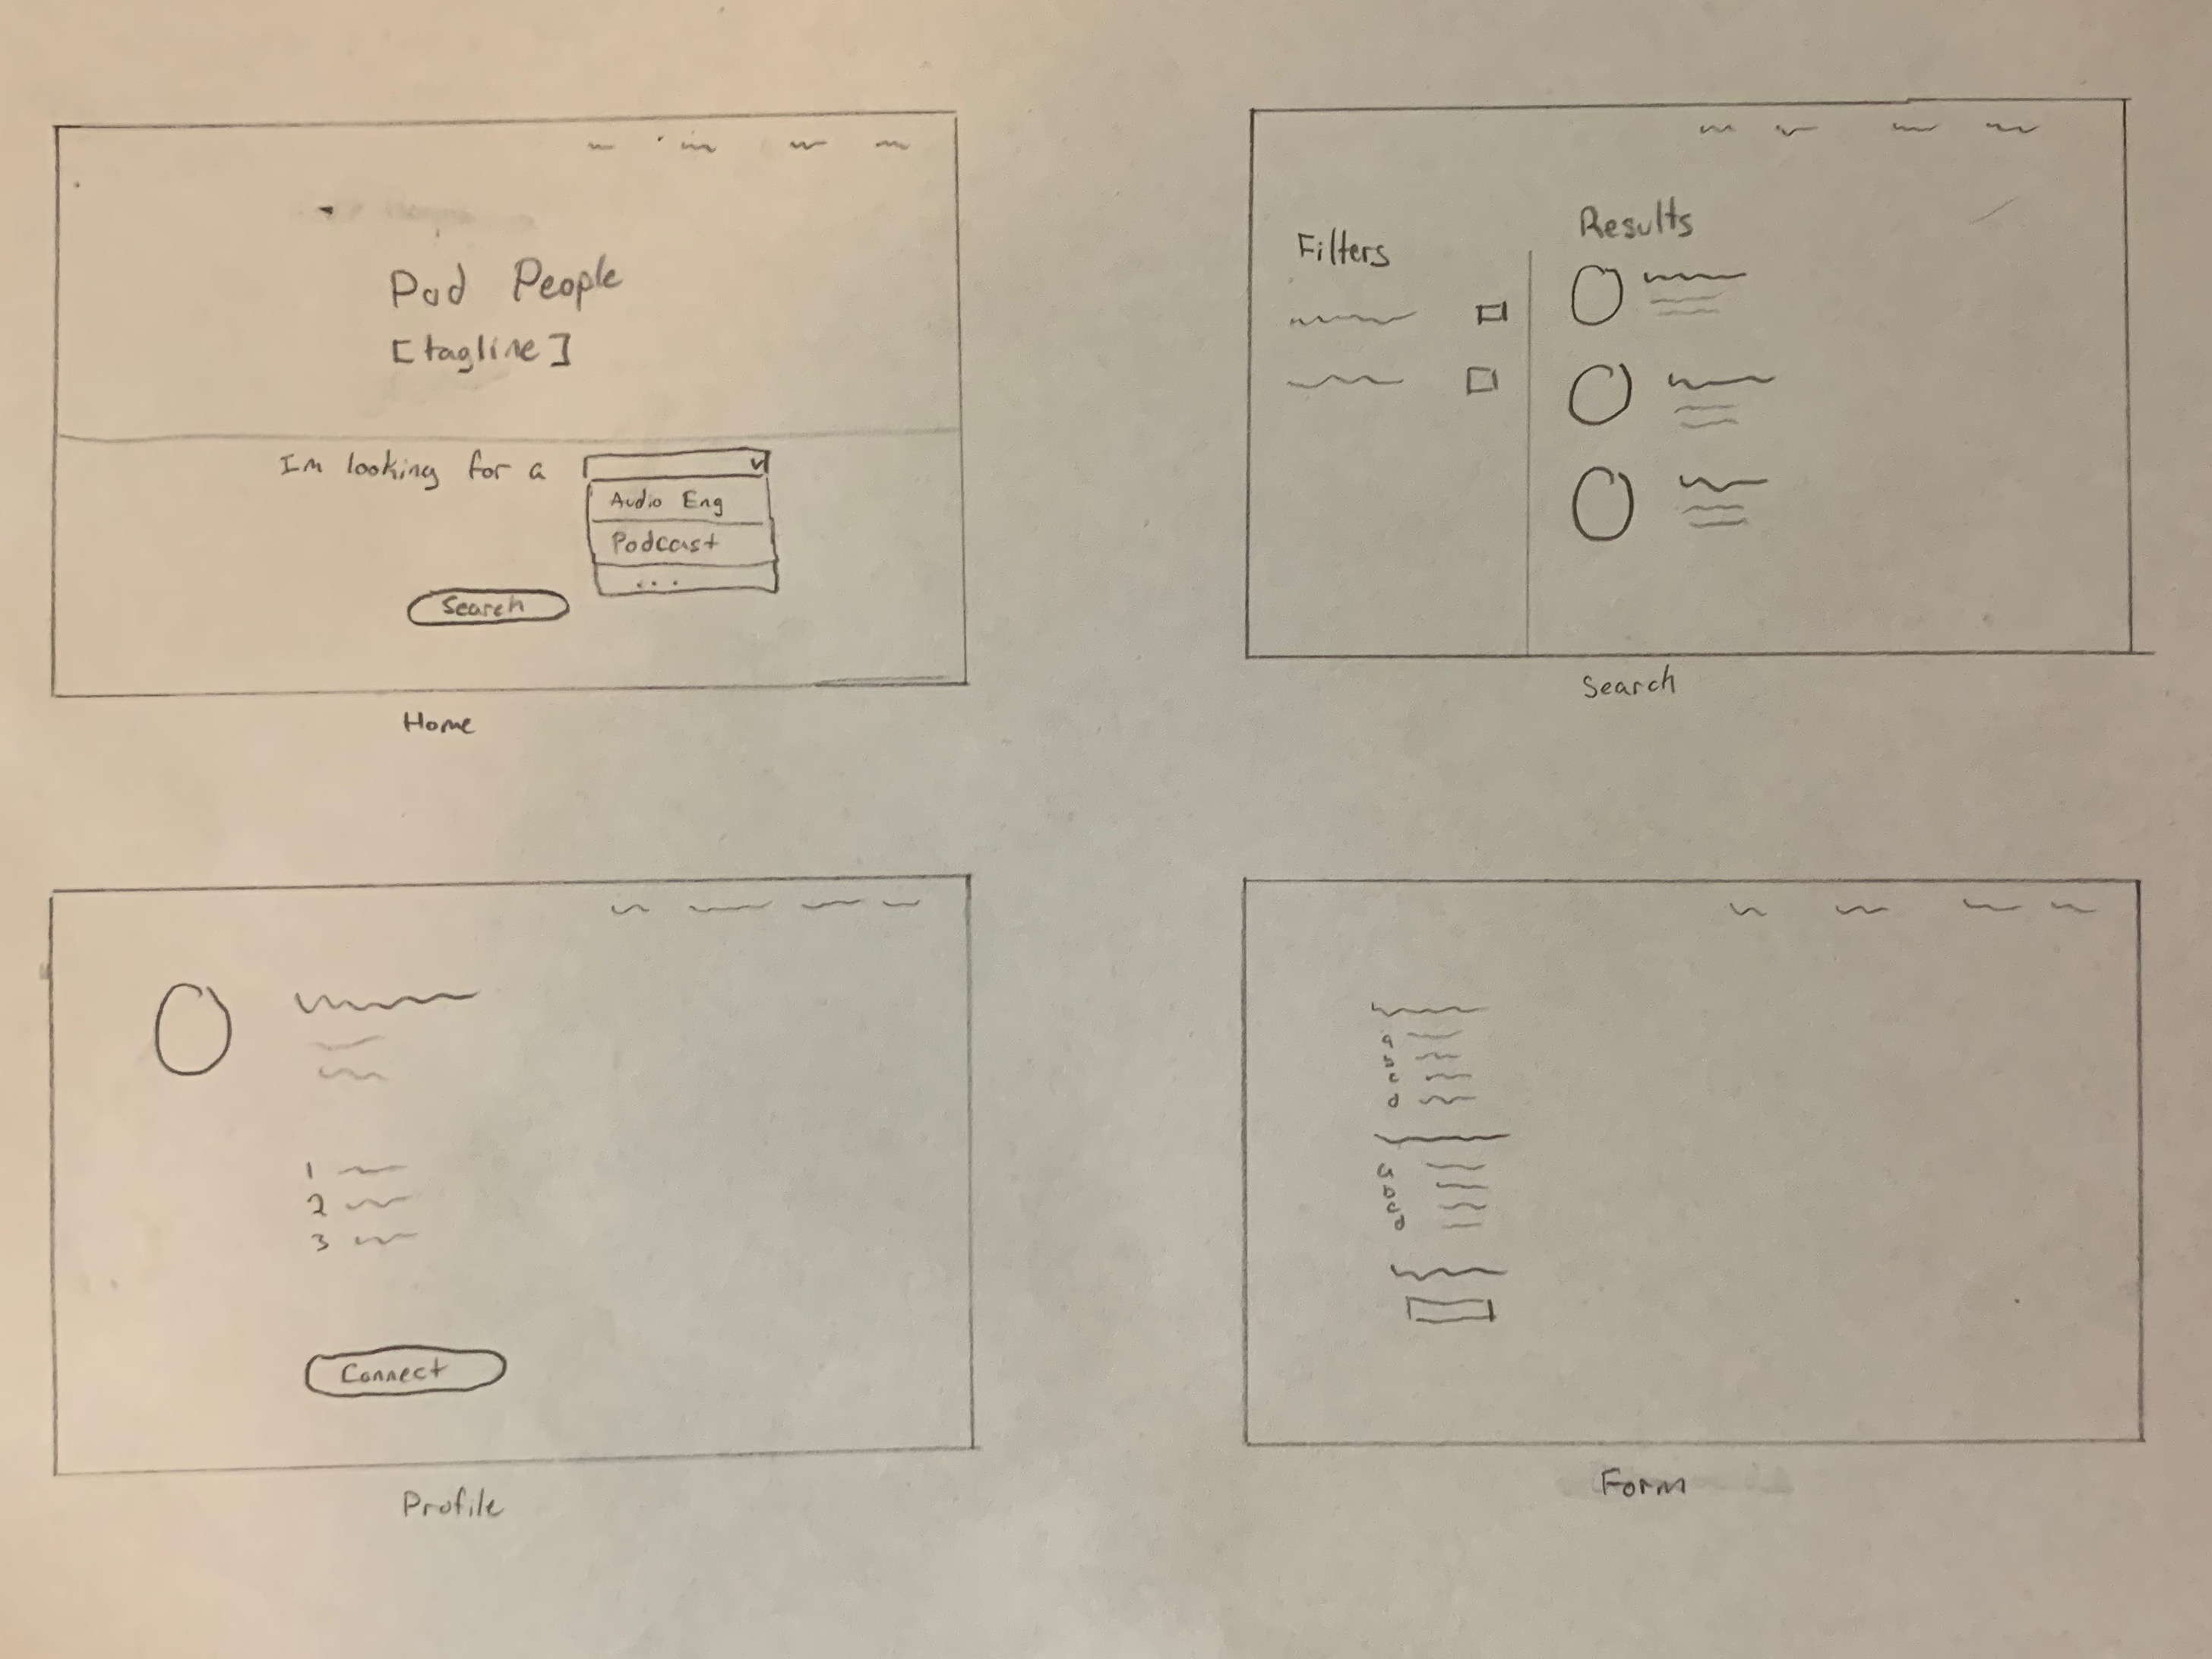 Pod People
[tagline]
Im looking for a
Audio Eng
Podcast
...
Search
Home
Filters
Results
Search
1
2
3
Connect
Profile
a
b
c
d
a
b
c
d
Form